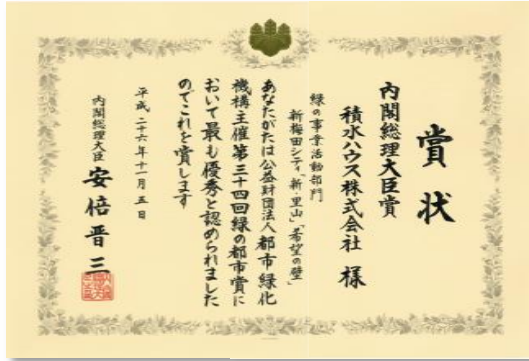 賞状
内閣総理大臣賞
積水ハウス株式会社 様
緑の事業活動部門
新梅田シティ「新・里山」「希望の壁」
あなたがたは公益財団法人都市緑化
機構主催第三十四回緑の都市賞に
おいて最も優秀と認められました
のでこれを賞します
平成二十六年十一月五日
内閣総理大臣 安倍晋三